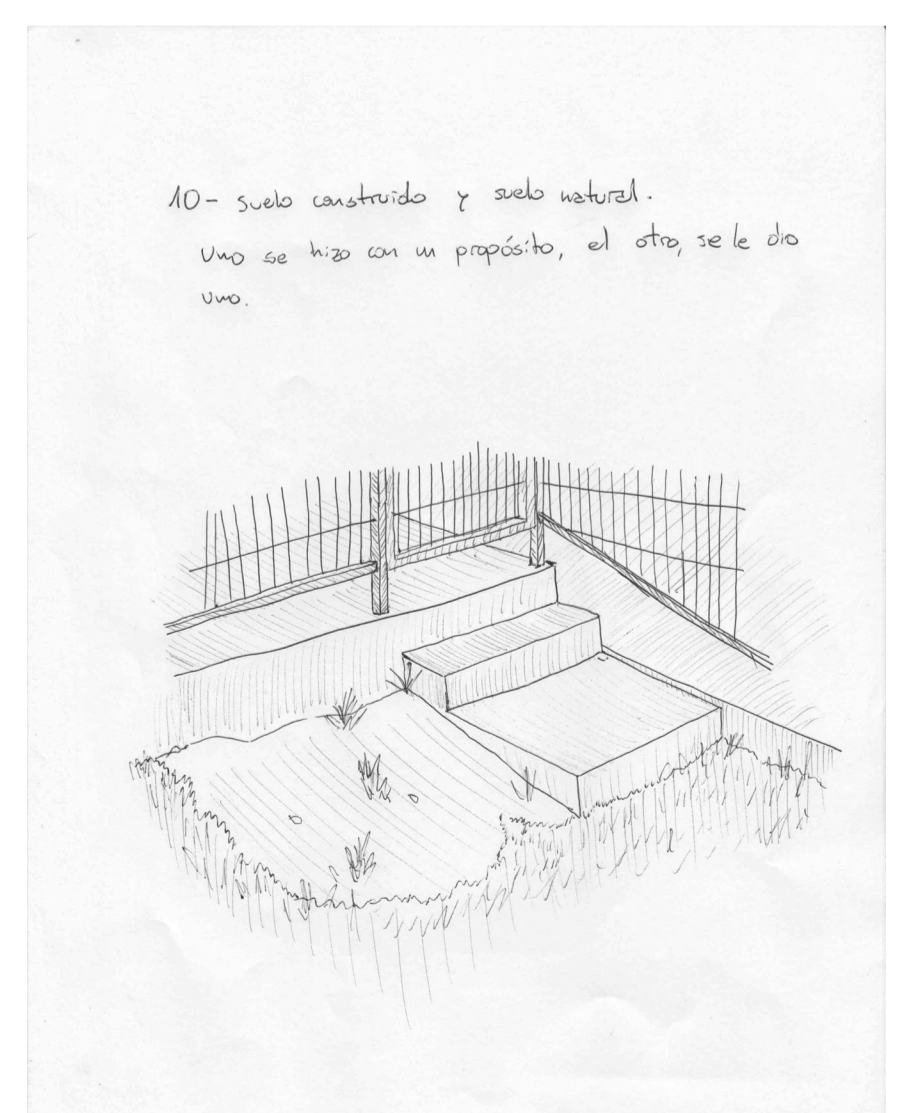 10- suelo construido y suelo natural.
Uno se hizo con un propósito, el otro, se le dio
uno.